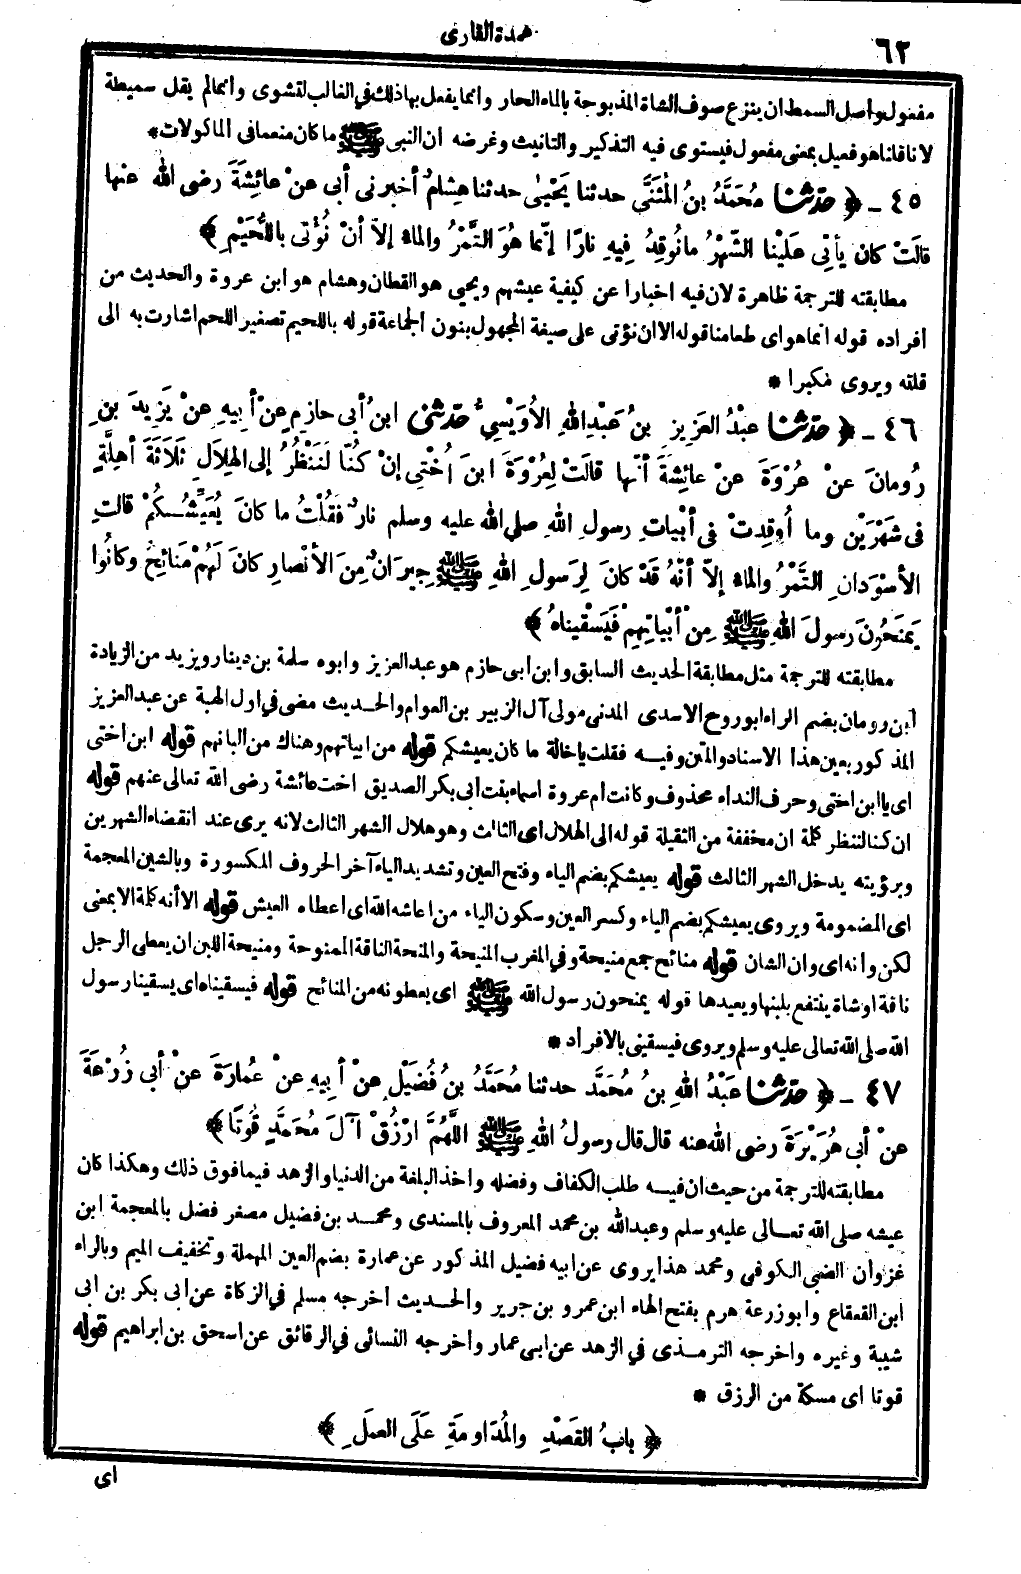 ٦٢
عمدة القارى
مفعول وأصل السمط ان ينزع صوف الشاة المذبوحة بالماء الحار وانما يفعل بها ذلك في الغالب لتشوى وانما لم يقل سميطة
لانا قلنا هو فعيل بمعنى مفعول فيستوى فيه التذكير والتانيث وغرضه ان النبى ﷺ ما كان متنعما فى الماكولات *
٤٥ - ﴿ حدثنا مُحَمَّدُ بنُ المُثَنَّى حدثنا يَحْيىٰ حدثنا هِشامٌ أخبرنى أبى عنْ عائِشَةَ رضى الله عنها
قالَتْ كان يأتِى عَلَيْنا الشَّهْرُ مانُوقِدُ فِيهِ نارًا إنَّما هُوَ التَّمْرُ والماءُ إلاَّ أنْ نُؤْتى باللُّحَيْمِ ﴾
مطابقته للترجمة ظاهرة لان فيه اخبارا عن كيفية عيشهم ويحيى هو القطان وهشام هو ابن عروة والحديث من
أفراده قوله انما هو اى طعامنا قوله الا ان نؤتى على صيغة المجهول بنون الجماعة قوله باللحيم تصغير اللحم اشارت به الى
قلته ويروى مكبرا *
٤٦ - ﴿ حدثنا عبْدُ العَزِيزِ بنُ عَبْدِ اللهِ الأُوَيْسِيُّ حدثنى ابنُ أبى حازِمٍ عنْ أبِيهِ عنْ يَزِيدَ بنِ
رُومانَ عنْ عُرْوَةَ عنْ عائِشَةَ أنَّها قالَتْ لِعُرْوَةَ ابنَ أُخْتِى إنْ كُنَّا لَنَنْظُرُ إلى الهِلاَلِ ثَلاَثَةَ أهِلَّةٍ
فى شَهْرَيْنِ وما أُوقِدتْ فى أبْياتِ رسولِ اللهِ صلى الله عليه وسلم نارٌ فقُلْتُ ما كانَ يُعَيِّشُكُمْ قالتِ
الأسْوَدانِ التَّمْرُ والماءُ إلاَّ أنَّهُ قَدْ كانَ لِرَسولِ اللهِ ﷺ جِيرَانٌ مِنَ الأنْصارِ كانَ لَهُمْ مَنائِحُ وكانُوا
يَمْنَحُونَ رسولَ اللهِ ﷺ مِنْ أبْياتِهِمْ فَيَسْقِيناهُ ﴾
مطابقته للترجمة مثل مطابقة الحديث السابق وابن ابى حازم هو عبد العزيز وابوه سلمة بن دينار ويزيد من الزيادة
ابن رومان بضم الراء ابو روح الاسدى المدنى مولى آل الزبير بن العوام والحديث مضى في اول الهبة عن عبد العزيز
المذكور بعين هذا الاسناد والمتن وفيه فقلت ياخالة ما كان يعيشكم قوله من ابياتهم وهناك من البانهم قوله ابن اختى
اى ياابن اختى وحرف النداء محذوف وكانت ام عروة اسماء بنت ابى بكر الصديق اخت عائشة رضى الله تعالى عنهم قوله
ان كنا لننظر كلمة ان مخففة من الثقيلة قوله الى الهلال اى الثالث وهو هلال الشهر الثالث لانه يرى عند انقضاء الشهرين
وبرؤيته يدخل الشهر الثالث قوله يعيشكم بضم الياء وفتح العين وتشديد الياء آخر الحروف المكسورة وبالشين المعجمة
اى المضمومة ويروى يعيشكم بضم الياء وكسر العين وسكون الياء من اعاشه الله اى اعطاه العيش قوله الا أنه كلمة الا بمعنى
لكن وانه اى وان الشان قوله منائح جمع منيحة وفي المغرب المنيحة والمنحة الناقة الممنوحة ومنيحة اللبن ان يعطى الرجل
ناقة او شاة ينتفع بلبنها ويعيدها قوله يمنحون رسول الله ﷺ اى يعطونه من المنائح قوله فيسقيناه اى يسقينا رسول
الله صلى الله تعالى عليه وسلم ويروى فيسقينى بالافراد *
٤٧ - ﴿ حدثنا عَبْدُ اللهِ بنُ مُحَمَّد حدثنا مُحَمَّدُ بنُ فُضَيْلٍ عنْ أبِيهِ عنْ عُمارَةَ عنْ أبى زُرْعَةَ
عنْ أبى هُرَيْرَةَ رضى الله عنه قال قال رسولُ اللهِ ﷺ اللَّهُمَّ ارْزُقْ آلَ مُحَمَّدٍ قُوتًا ﴾
مطابقته للترجمة من حيث ان فيه طلب الكفاف وفضله واخذ البلغة من الدنيا والزهد فيما فوق ذلك وهكذا كان
عيشه صلى الله تعالى عليه وسلم وعبد الله بن محمد المعروف بالمسندى ومحمد بن فضيل مصغر فضل بالمعجمة ابن
غزوان الضبى الكوفى ومحمد هذا يروى عن ابيه فضيل المذكور عن عمارة بضم العين المهملة وتخفيف الميم وبالراء
ابن القعقاع وابو زرعة هرم بفتح الهاء ابن عمرو بن جرير والحديث اخرجه مسلم في الزكاة عن ابى بكر بن ابى
شيبة وغيره واخرجه الترمذى في الزهد عن ابى عمار واخرجه النسائى في الرقائق عن اسحق بن ابراهيم قوله
قوتا اى مسكة من الرزق *
﴿ بابُ القَصْدِ والمُدَاومَةِ عَلَى العمَلِ ﴾
اى